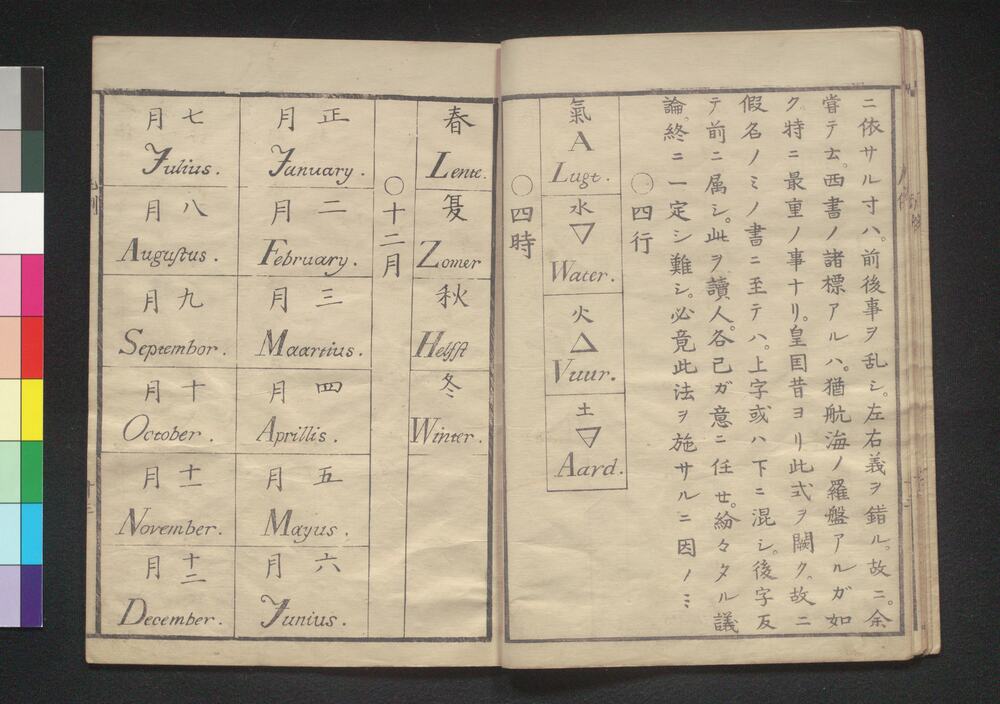 ニ依サル寸ハ。前後事ヲ乱シ。左右義ヲ錯ル。故ニ。余
嘗テ云。西書ノ諸標アルハ。猶航海ノ羅盤アルガ如
ク。特ニ最重ノ事ナリ。皇国昔ヨリ此式ヲ闕ク。故ニ
假名ノミノ書ニ至テハ。上字或ハ下ニ混シ。後字反
テ前ニ属シ。此ヲ讀人。各已ガ意ニ任セ。紛々タル議
論。終ニ一定シ難シ。必竟此法ヲ施サルニ因ノミ
〇四行
氣
A
Lugt.
水
▽
Water.
火
△
Vuur.
土
Aard.
〇四時
春
Lente.
夏
Zomer
秋
Helfst
冬
Winter.
〇十二月
正月
January.
二月
February.
三月
Maartius.
四月
Aprillis.
五月
Mayus.
六月
Junius.
七月
Julius.
八月
Auguſtus.
九月
Septembor.
十月
October.
十一月
November.
十二月
December.